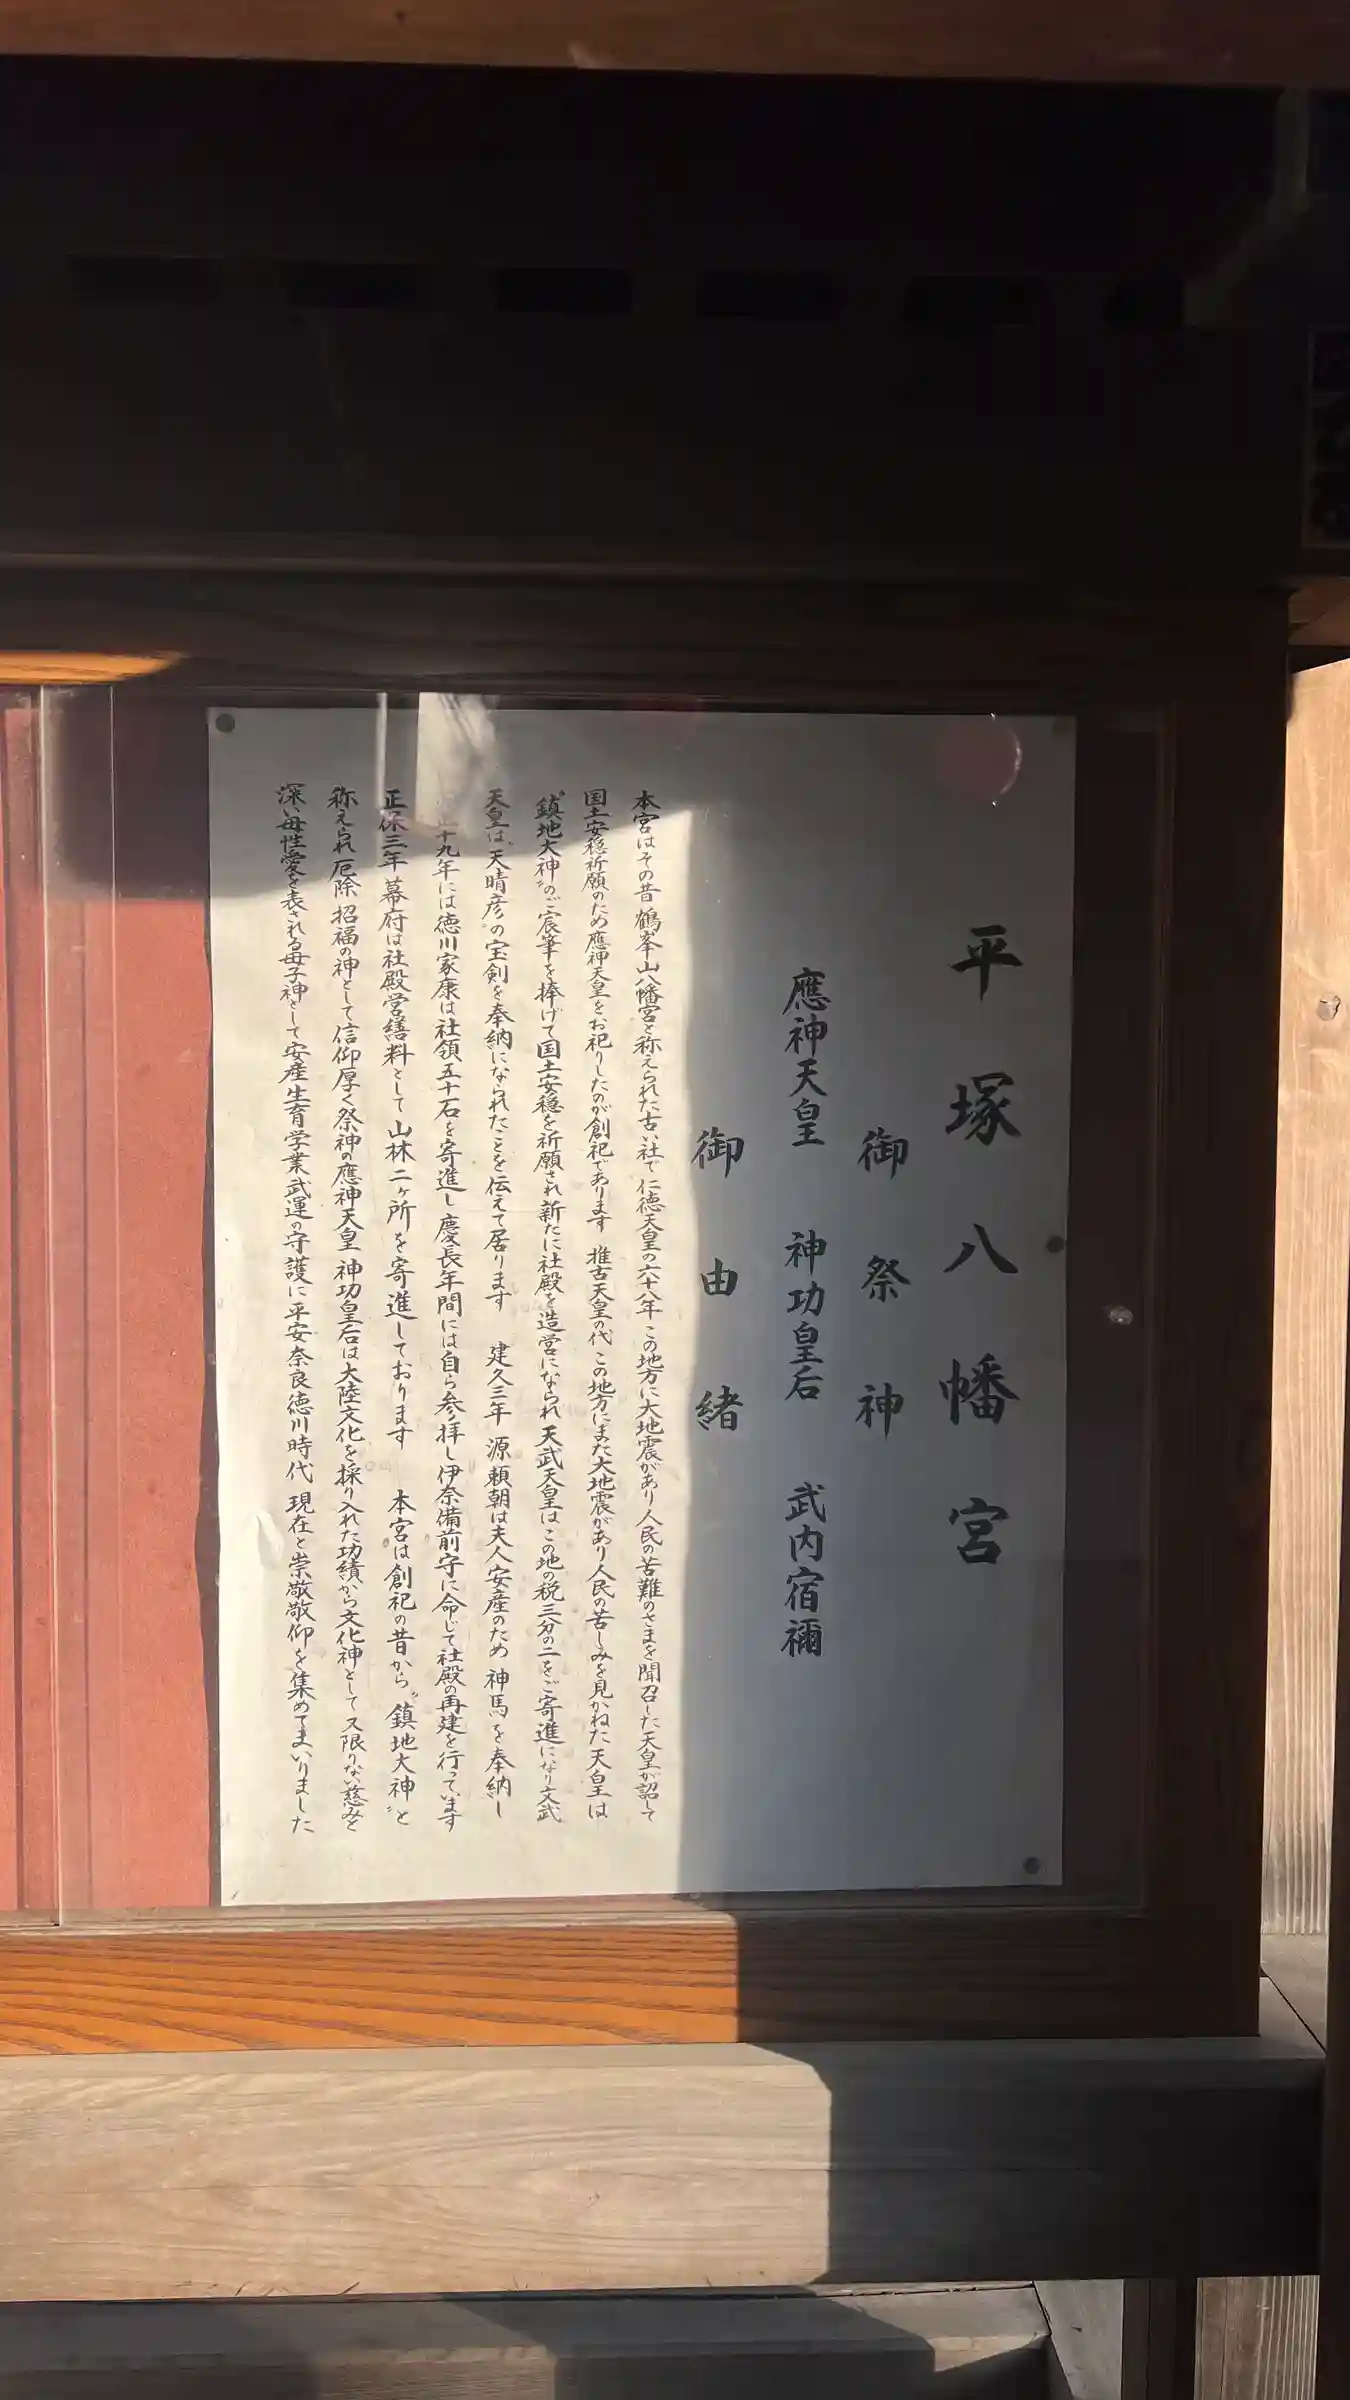 平塚八幡宮
御祭神
應神天皇 神功皇后 武内宿禰
御由緒
本宮はその昔 鶴峯山八幡宮と称えられた古い社で 仁徳天皇の六十八年 この地方に大地震があり人民の苦難のさまを聞召した天皇が詔して
国土安穏祈願のため應神天皇をお祀りしたのが創祀であります 推古天皇の代 この地方にまた大地震があり人民の苦しみを見かねた天皇は
〝鎮地大神〟のご宸筆を捧げて国土安穏を祈願され新たに社殿を造営になられ天武天皇はこの地の税三分の二をご寄進になり文武
天皇は〝天晴彦〟の宝剣を奉納になられたことを伝えて居ります 建久三年 源頼朝は夫人安産のため 神馬を奉納し
正十九年には徳川家康は社領五十石を寄進し慶長年間には自ら参拝し伊奈備前守に命じて社殿の再建を行っています
正保三年 幕府は社殿営繕料として山林二ヶ所を寄進しております 本宮は創祀の昔から〝鎮地大神〟と
称えられ厄除 招福の神として信仰厚く祭神の應神天皇 神功皇后は大陸文化を採り入れた功績から文化神として又限りない慈みと
深い母性愛を表される母子神として安産生育学業武運の守護に平安奈良徳川時代 現在と崇敬敬仰を集めてまいりました